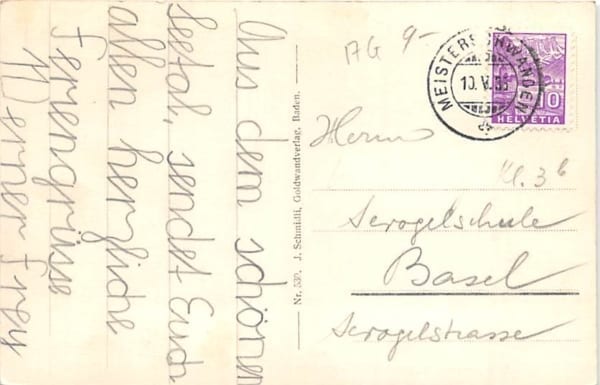 Aus dem schönen
Seetal, sendet Euch
allen herzliche
Feriengrüsse
Werner Frey
Nr. 539. J. Schmidli, Goldwandverlag, Baden.
AG 9-
MEISTERSCHWANDEN
10.V.35
10
HELVETIA
Herrn
Kl. 3b
Sevogelschule
Basel
Sevogelstrasse